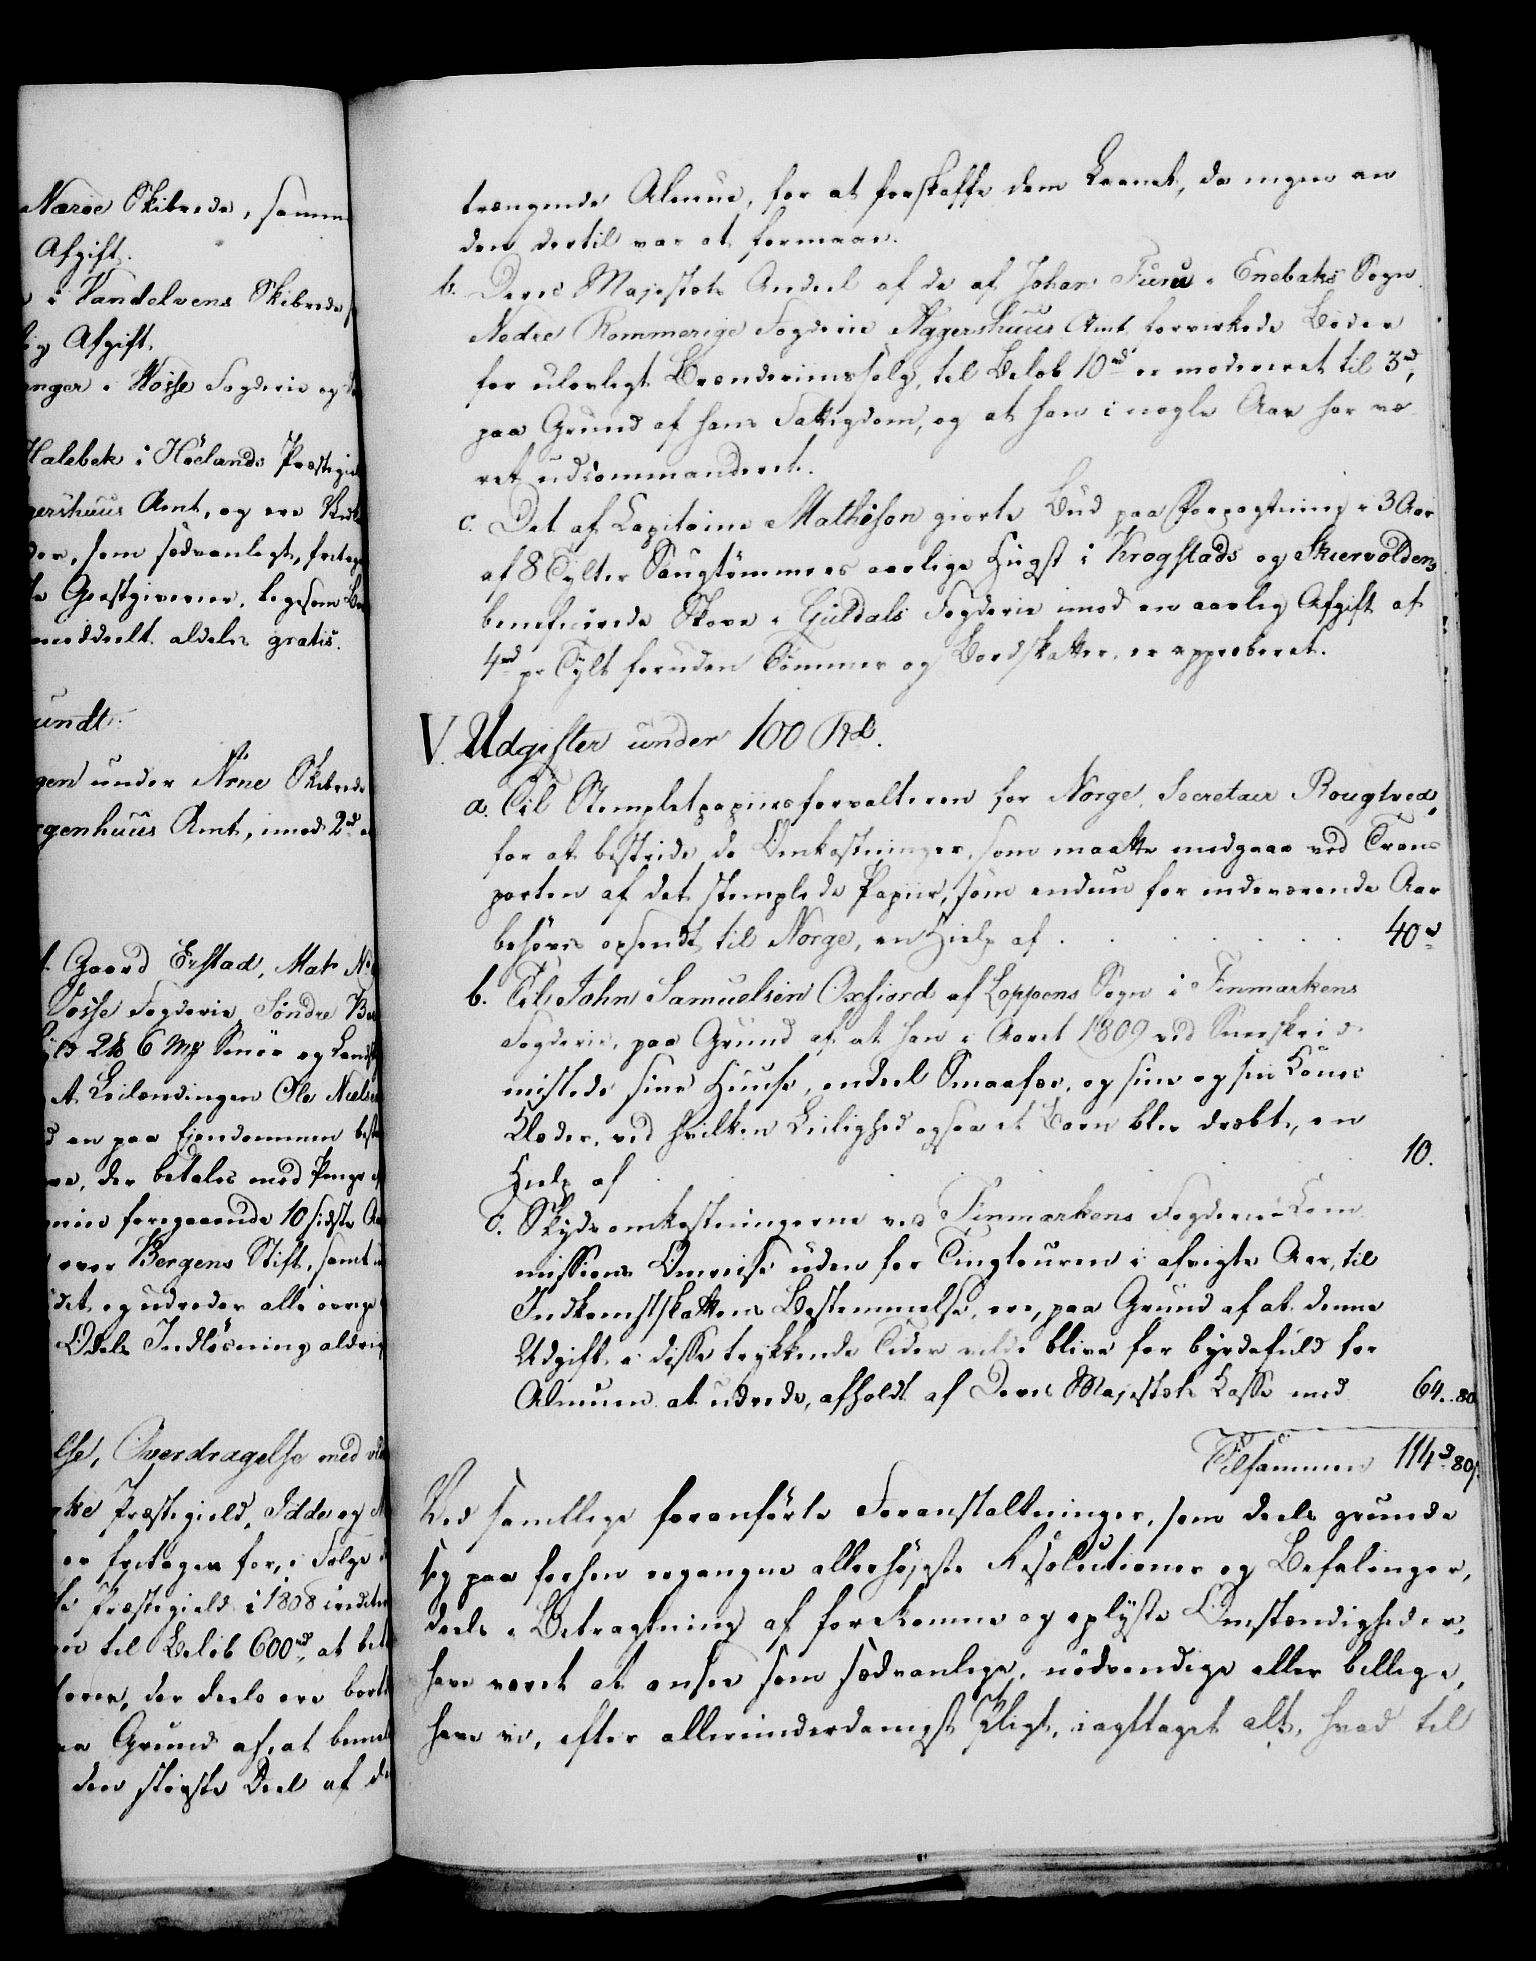 Næröe Skibrede, samme
Afgift.
i Vandelvens Skibrede
Afgift.
anger i Wosse Fogderie og
Halebek i Hölands Præstegi
gershuus Amt, og ere
der, som sædvanligt, fritag
Giestgiverier, ligesom
meddeelt aldeles gratis.
undt.
gen under Arne Skibrede
genhuus Amt, imod 2rd
Gaard Erstad, Mats No
Vosse Fogderie, Söndre
2 6 Smör og
At Leilændingen Ole Niels
en paa Eiendommen
der betales med Penge
foregaaende 10 sidste
over Bergens Stift, samt
det og udreder alle övrige
Odels Indlösning aldrig
lse, Overdragelse med
Præstegield, Idde og
er fritagen for, i Fölge
Præstegield i 1808
til Belöb 600rd, at
der deels ere
Grund af, at
den störste Deel af
trængende Almue, for at forskaffe dem Laanet, da ingen an
den dertil var at formaae.
b. Deres Majestæts Andeel af de af Johan Furu i Enebaks Sogn
Nedre Rommerige Fogderie Aggershuus Amt forvirkede Böder
for ulovligt Brændeviinssalg, til Belöb 10rd er modereret til 3rd,
paa Grund af hans Fattigdom, og at han i nogle Aar har væ
ret udcommanderet.
c. Det af Capitaine Mathison giorte Bud paa Forpagtning i 3 Aar
af 8 Tylter Saugtömmers aarlige Hugst i Krogstads og Skiervoldens
beneficerede Skove i Guldals Fogderie imod en aarlig Afgift af
4rd pr Tylt foruden Tömmer og Bordskatter, er approberet.
V. Udgifter under 100 Rd.
a. Til Stempletpapiirsforvalteren for Norge, Secretair Rougtved,
for at bestride de Omkostninger, som maatte medgaae ved Trans
porten af det stemplede Papiir, som endnu for indeværende Aar
behöves opsendt til Norge, en Hielp af . . . . . . . 40rd
b. Til John Samuelsen Oxfiord af Loppens Sogn i Finmarkens
Fogderie, paa Grund af at han i Aaret 1809 ved Sneeskred
mistede sine Huuse, endeel Smaafæe, og sine og sin Kones
Klæder, ved hvilken Leilighed ogsaa et Barn blev dræbt, en
Hielp af . . . . 10.
c. Skydsomkostningerne ved Finmarkens Fogderie Com
missions Omreise uden for Tingtouren i afvigte Aar, til
Indkomstskattens Bestemmelse, ere, paa Grund af at denne
Udgift i disse trykkende Tider vilde blive for byrdefuld for
Almuen at udrede, afholdt af Deres Majestæts Casse med 64. 80
Tilsammen 114rd 80s.
Ved samtlige foranförte Foranstaltninger, som deels grunde
sig paa forhen ergangne allerhöjeste Resolutioner og Befalinger,
deels i Betragtning af forekomne og oplyste Omstændigheder,
have været at ansee som sædvanlige, nödvendige eller billige,
have vi, efter allerunderdanigst Pligt, iagttaget alt, hvad til